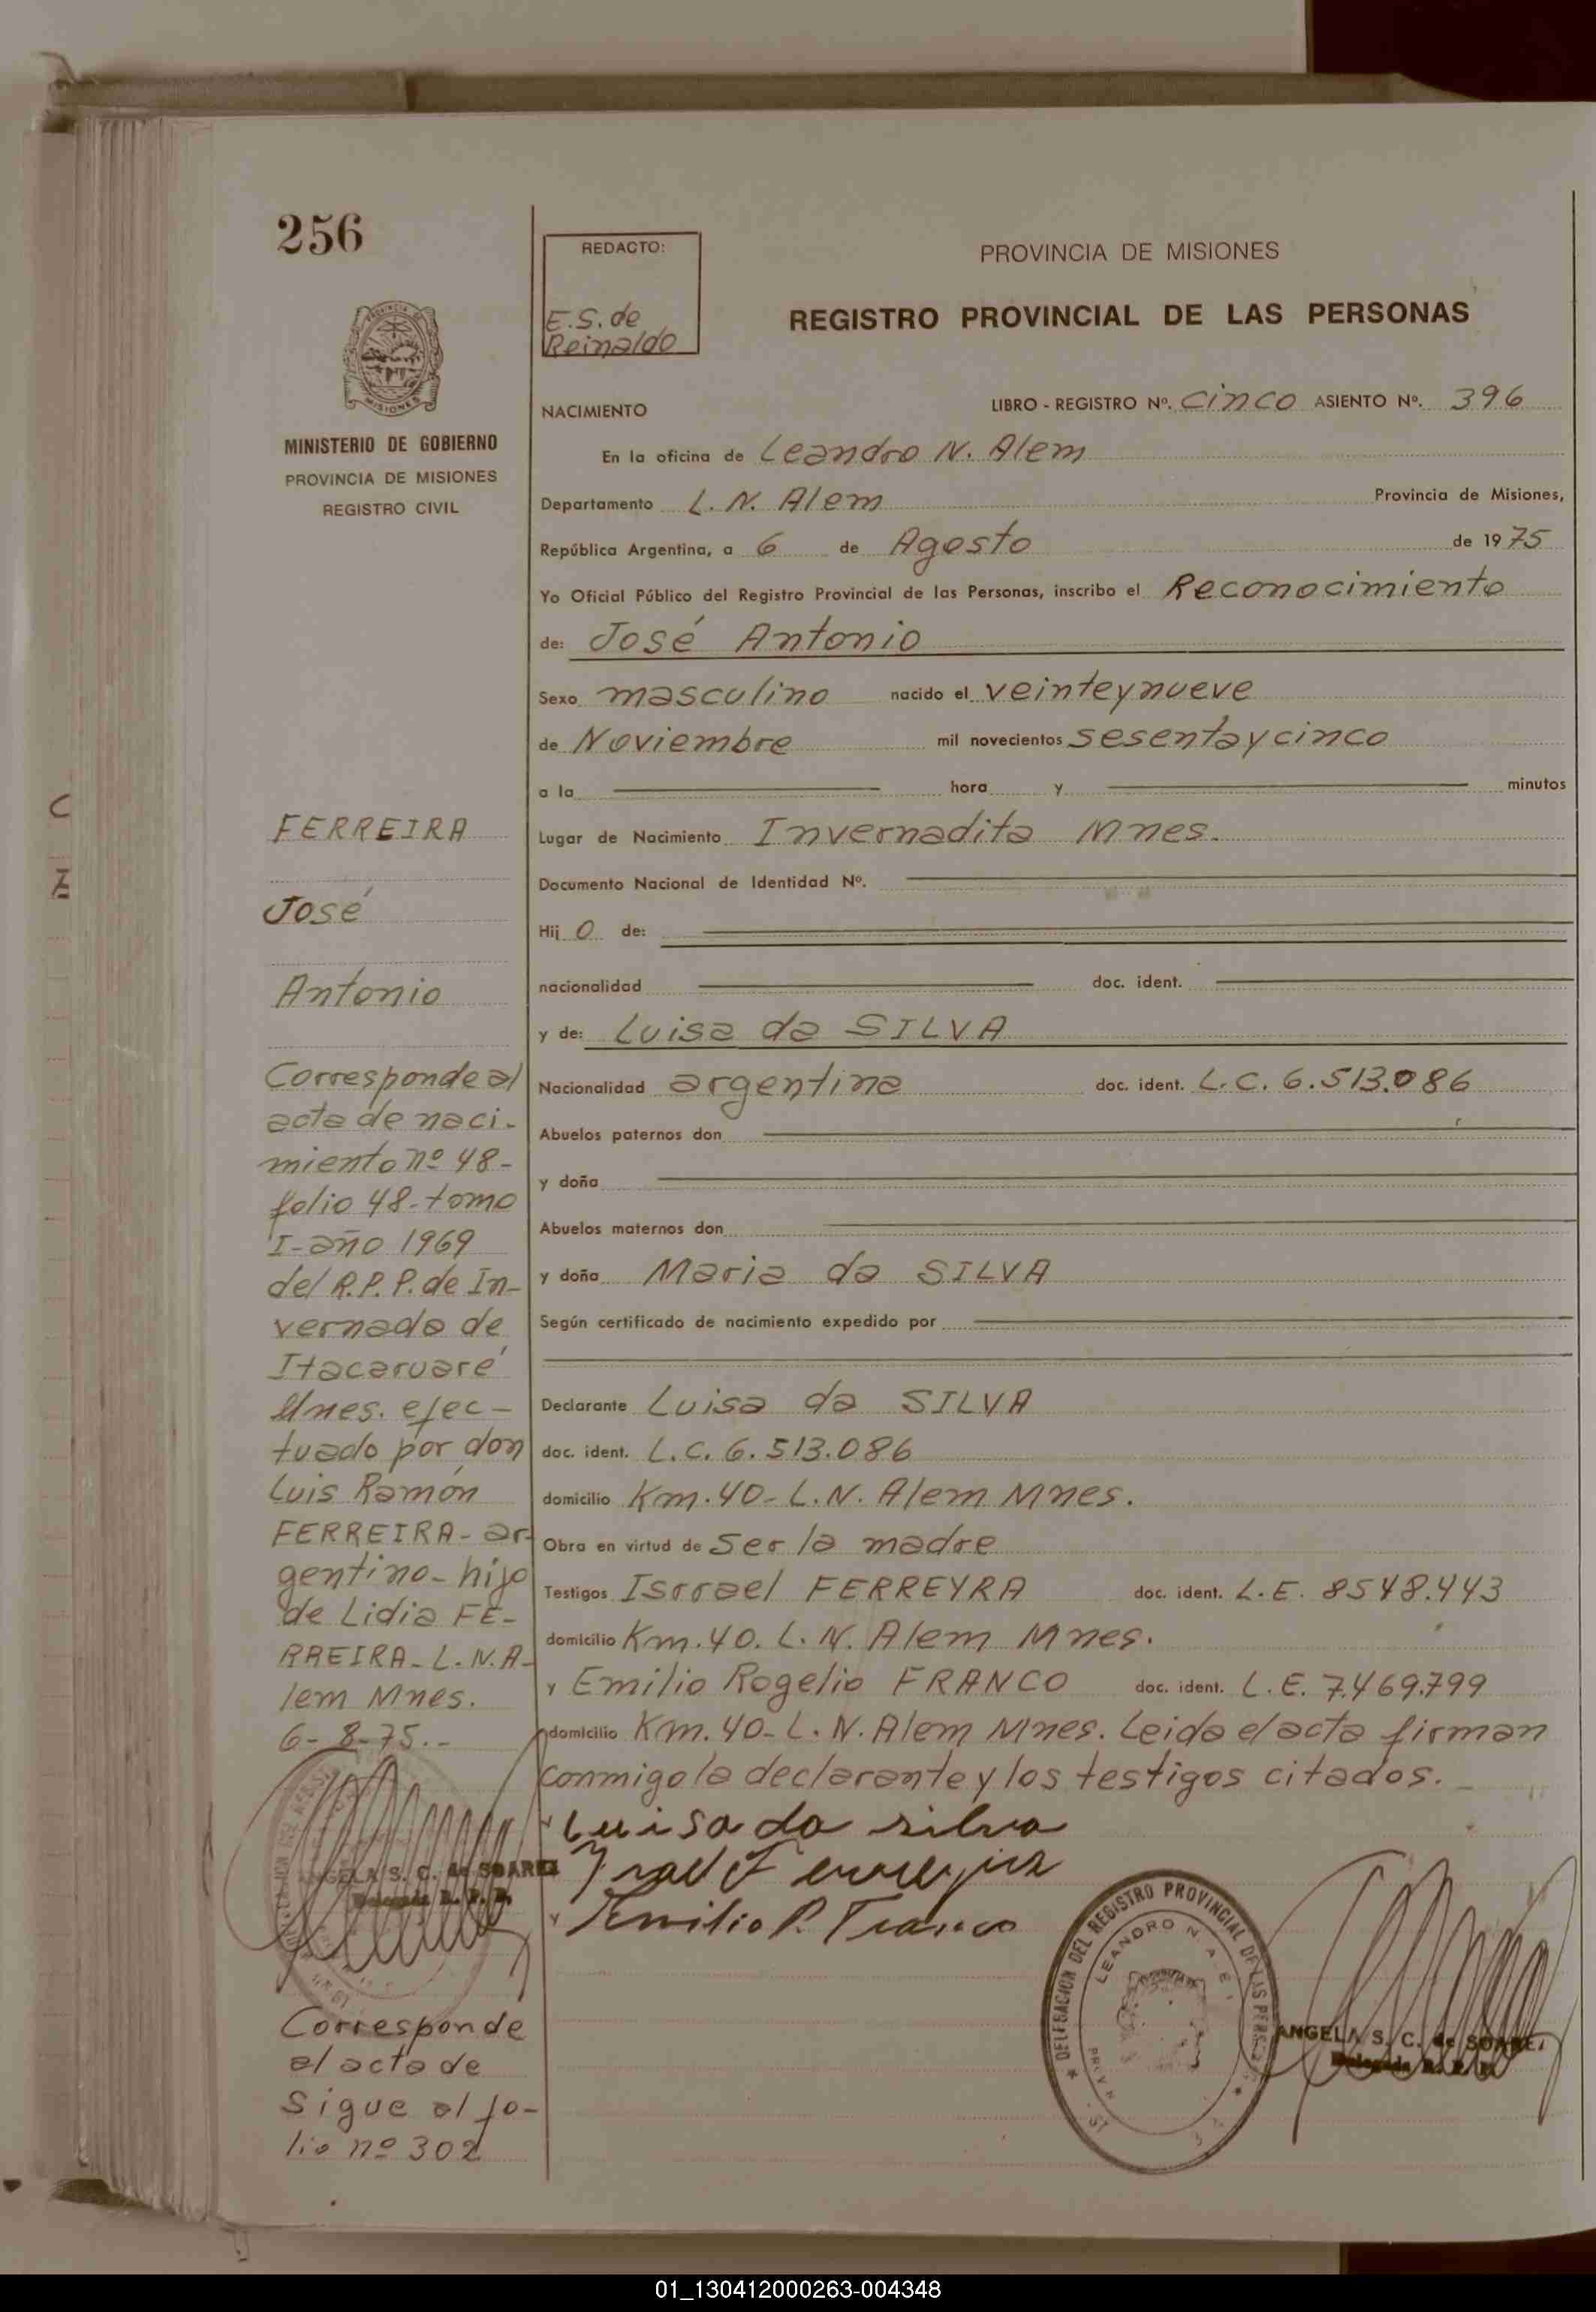 256
MINISTERIO DE GOBIERNO
PROVINCIA DE MISIONES
REGISTRO CIVIL
FERREIRA
José
Antonio
Corresponde al
acta de naci-
miento nº 48-
folio 48-tomo
I-año 1969
del R.P.P. de In-
vernada de
Itacaruaré
Mnes. efec-
tuado por don
Luis Ramón
FERREIRA-ar-
gentino-hijo
de Lidia FE-
RREIRA-L.N.A-
lem Mnes.
6-8-75.-
ANGELA S. C. de SOAREZ
Delegada R. P. P.
Corresponde
al acta de
Sigue al fo-
lio nº 302
REDACTO:
E.S. de
Reinaldo
PROVINCIA DE MISIONES
REGISTRO PROVINCIAL DE LAS PERSONAS
NACIMIENTO LIBRO - REGISTRO Nº. cinco ASIENTO Nº. 396
En la oficina de Leandro N. Alem
Departamento L. N. Alem Provincia de Misiones,
República Argentina, a 6 de Agosto de 1975
Yo Oficial Público del Registro Provincial de las Personas, inscribo el Reconocimiento
de: José Antonio
Sexo masculino nacido el veinteynueve
de Noviembre mil novecientos sesentaycinco
a la hora y minutos
Lugar de Nacimiento Invernadita Mnes.
Documento Nacional de Identidad Nº.
Hij o de:
nacionalidad doc. ident.
y de: Luisa da SILVA
Nacionalidad argentina doc. ident. L.C. 6.513.086
Abuelos paternos don
y doña
Abuelos maternos don
y doña Maria da SILVA
Según certificado de nacimiento expedido por
Declarante Luisa da SILVA
doc. ident. L.C. 6.513.086
domicilio Km.40-L.N. Alem Mnes.
Obra en virtud de Ser la madre
Testigos Isrrael FERREYRA doc. ident. L.E. 8548.443
domicilio Km.40. L.N. Alem Mnes.
y Emilio Rogelio FRANCO doc. ident. L.E. 7.469.799
domicilio Km.40-L.N. Alem Mnes. Leida el acta firman
conmigo la declarante y los testigos citados.
Luisa da silva
Emilio R. Franco
DELEGACION DEL REGISTRO PROVINCIAL DE LAS PERSONAS
LEANDRO N. ALEM
ANGELA S. C. de SOAREZ
Delegada R. P. P.
01_130412000263-004348